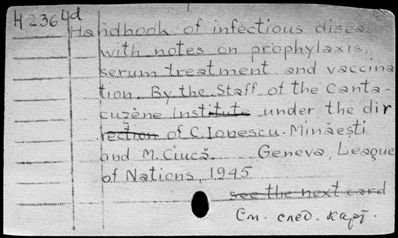 H2364d
Handbook of infectious disea
with notes on prophylaxis,
serum treatment and vaccina
tion. By the Staff of the Canta-
cuzène Institute under the dir
ection of C. Ionescu-Minăești
and M. Ciucă. Geneva, League
of Nations, 1945
see the next card
См. след. карт.